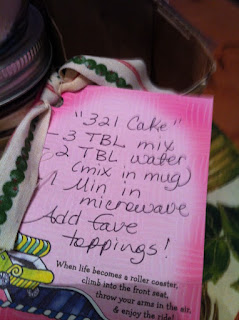 "321 Cake"
- 3 TBL mix
- 2 TBL water
(mix in mug)
1 Min in
microwave
Add fave
toppings!
When life becomes a roller coaster,
climb into the front seat,
throw your arms in the air,
& enjoy the ride!